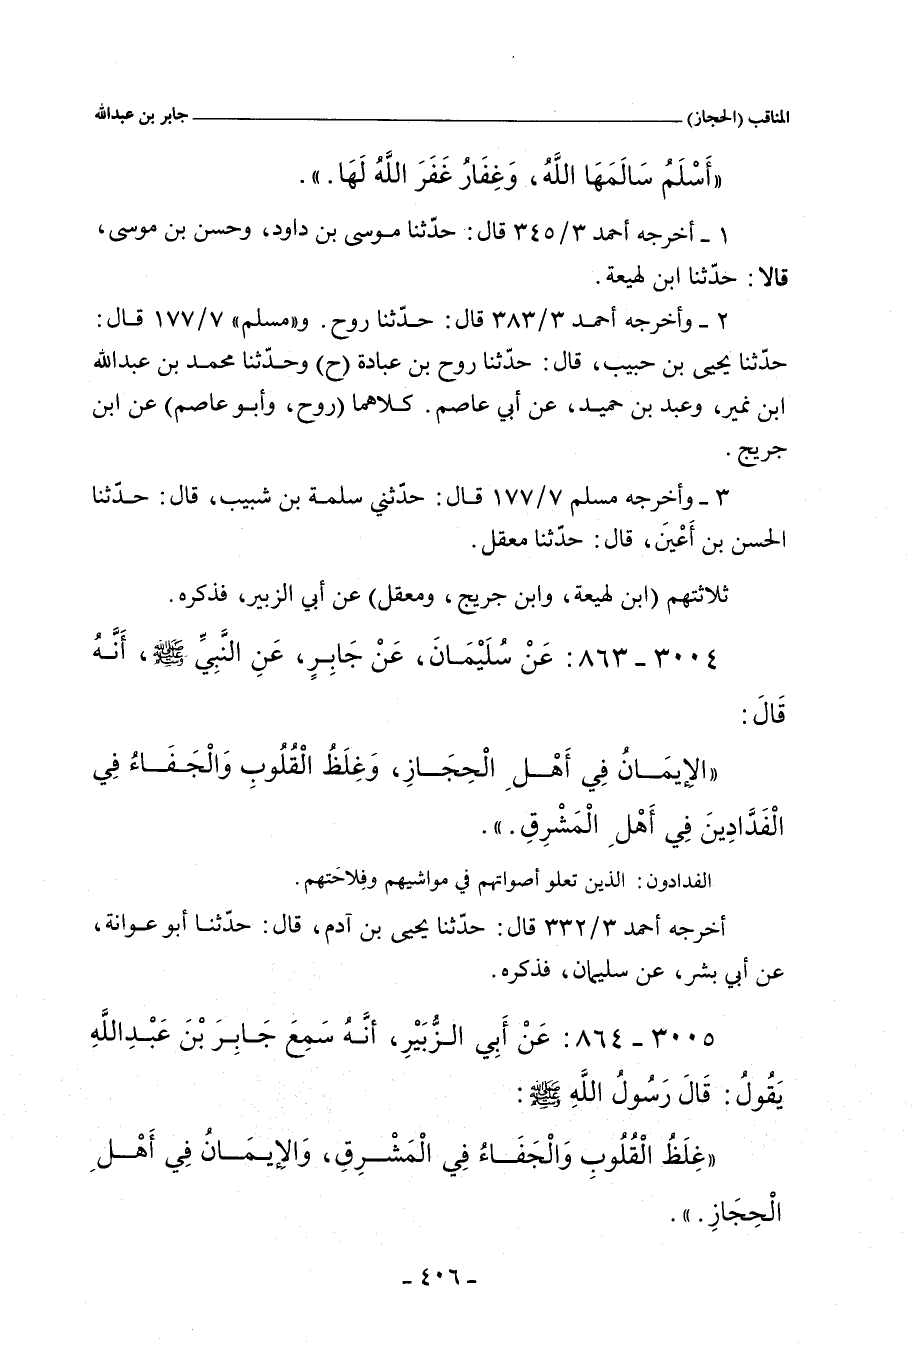 المناقب (الحجاز) ــــــــــــــــــــ جابر بن عبدالله
«أَسْلَمُ سَالَمَهَا اللَّهُ، وَغِفَارُ غَفَرَ اللَّهُ لَهَا.».
١ ـ أخرجه أحمد ٣٤٥/٣ قال: حدّثنا موسى بن داود، وحسن بن موسى،
قالا: حدّثنا ابن لهيعة.
٢ ـ وأخرجه أحمد ٣٨٣/٣ قال: حدّثنا روح. و«مسلم» ١٧٧/٧ قال:
حدّثنا يحيى بن حبيب، قال: حدّثنا روح بن عبادة (ح) وحدّثنا محمد بن عبدالله
ابن نمير، وعبد بن حميد، عن أبي عاصم. كلاهما (روح، وأبو عاصم) عن ابن
جريج.
٣ ـ وأخرجه مسلم ١٧٧/٧ قال: حدّثني سلمة بن شبيب، قال: حدّثنا
الحسن بن أَعْيَن، قال: حدّثنا معقل.
ثلاثتهم (ابن لهيعة، وابن جريج، ومعقل) عن أبي الزبير، فذكره.
٣٠٠٤ ـ ٨٦٣: عَنْ سُلَيْمَانَ، عَنْ جَابِرٍ، عَنِ النَّبِيِّ ﷺ، أَنَّهُ
قَالَ:
«الإِيمَانُ فِي أَهْلِ الْحِجَازِ، وَغِلَظُ الْقُلُوبِ وَالْجَفَاءُ فِي
الْفَدَّادِينَ فِي أَهْلِ الْمَشْرِقِ.».
الفدادون: الذين تعلو أصواتهم في مواشيهم وفلاحتهم.
أخرجه أحمد ٣٣٢/٣ قال: حدّثنا يحيى بن آدم، قال: حدّثنا أبو عوانة،
عن أبي بشر، عن سليمان، فذكره.
٣٠٠٥ ـ ٨٦٤: عَنْ أَبِي الزُّبَيْرِ، أَنَّهُ سَمِعَ جَابِرَ بْنَ عَبْدِاللَّهِ
يَقُولُ: قَالَ رَسُولُ اللَّهِ ﷺ:
«غِلَظُ الْقُلُوبِ وَالْجَفَاءُ فِي الْمَشْرِقِ، وَالإِيمَانُ فِي أَهْلِ
الْحِجَازِ.».
ـ ٤٠٦ ـ